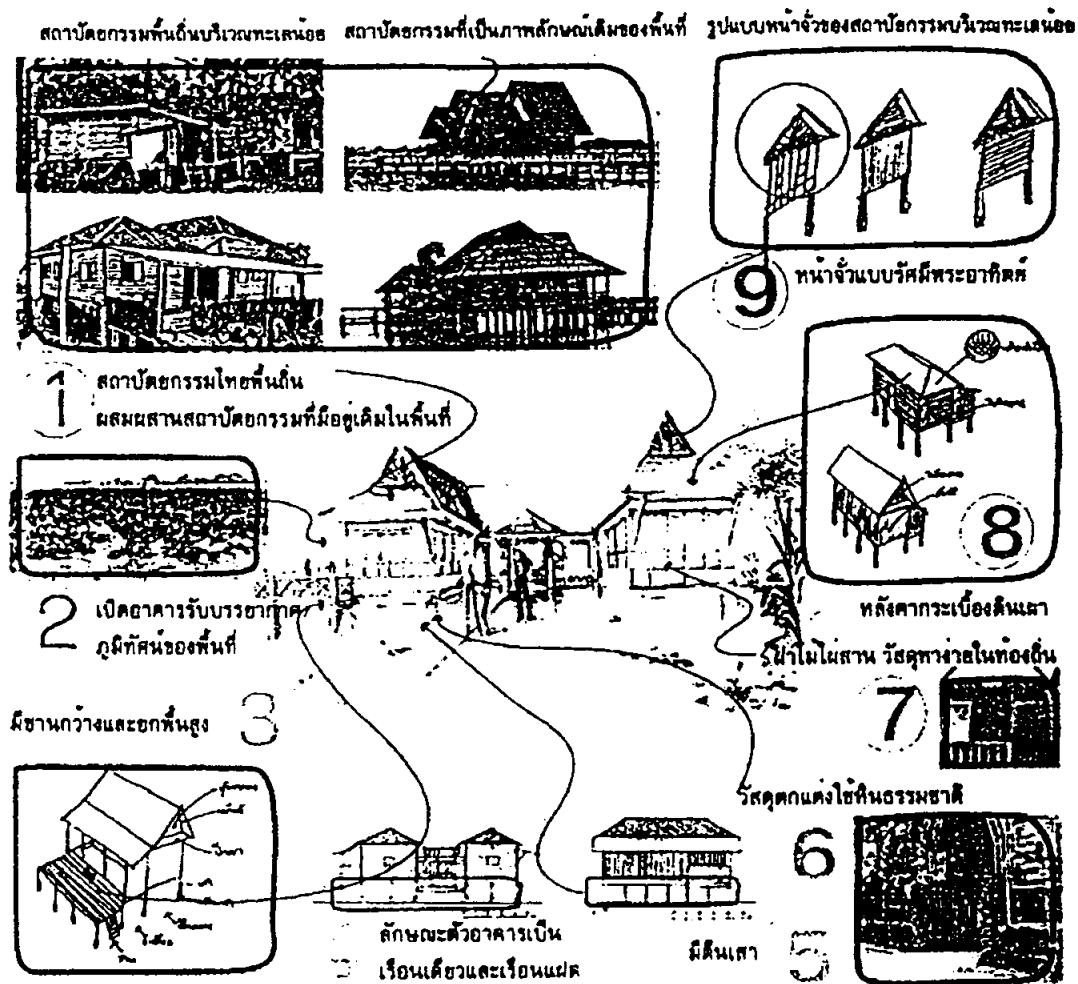 สถาปัตยกรรมพื้นถิ่นบริเวณทะเลน้อย
สถาปัตยกรรมที่เป็นภาพลักษณ์เดิมของพื้นที่
รูปแบบหน้าจั่วของสถาปัตยกรรมบริเวณทะเลน้อย
9 หน้าจั่วแบบรัศมีพระอาทิตย์
1 สถาปัตยกรรมไทยพื้นถิ่น
ผสมผสานสถาปัตยกรรมที่มีอยู่เดิมในพื้นที่
8
หลังคากระเบื้องดินเผา
2 เปิดอาคารรับบรรยากาศ
ภูมิทัศน์ของพื้นที่
ฝาไม้ไผ่สาน วัสดุหาง่ายในท้องถิ่น
7
มีชานกว้างและยกพื้นสูง 3
วัสดุตกแต่งใช้หินธรรมชาติ
6
ลักษณะตัวอาคารเป็น
เรือนเดี่ยวและเรือนแฝด
มีตีนเสา 5